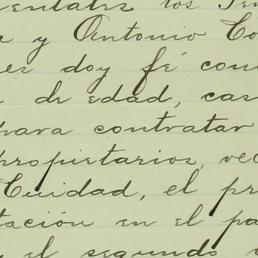 los
y Antonio
doy fé
de edad, cas
para contratar
propietarios, vec
Cuidad, el pr
tación en el pa
el segundo